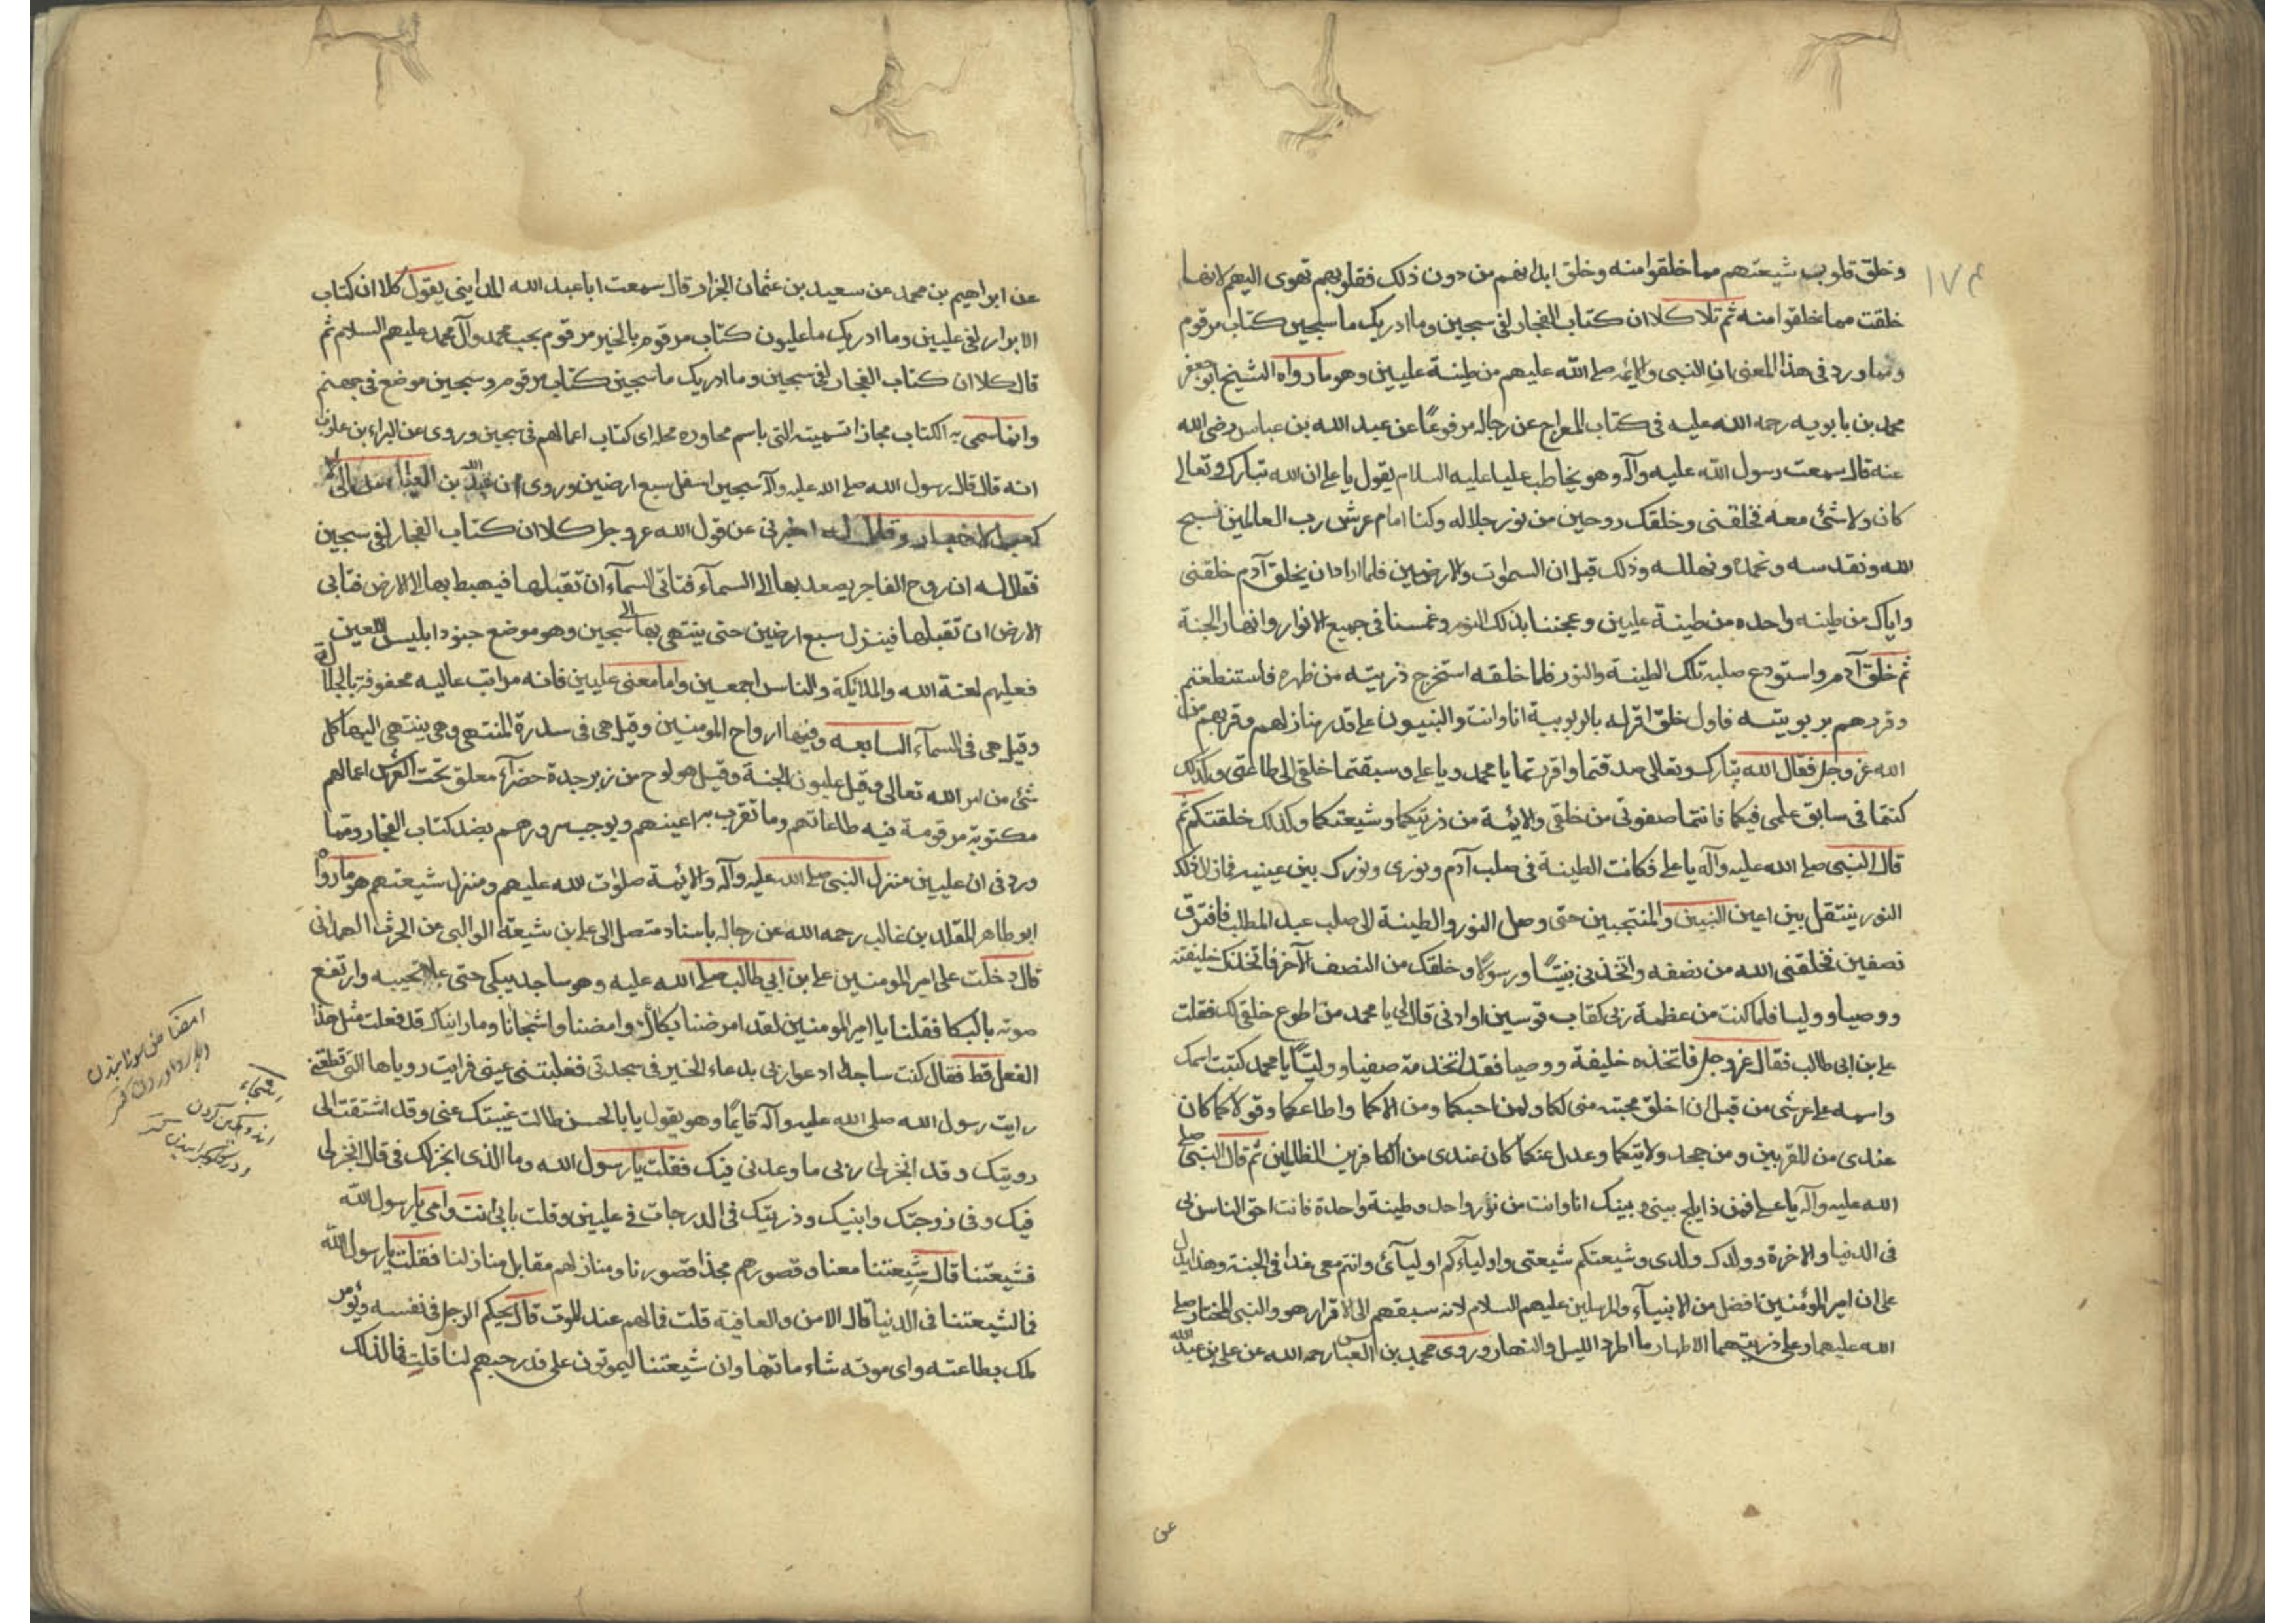 ١٧٤
وخلق قلوب شيعتهم مما خلقوا منه وخلق ابدانهم من دون ذلك فقلوبهم تهوى اليهم لانها
خلقت مما خلقوا منه ثم تلا كلا ان كتاب الفجار لفى سجين وما ادريك ما سجين كتاب مرقوم
ومما ورد فى هذا المعنى ان النبى والائمه صلے الله عليهم من طينة عليين وهو ما رواه الشيخ ابو جعفر
محمد بن بابويه رحمه الله عليه فى كتاب المعراج عن رجاله مرفوعًا عن عبد الله بن عباس رضى الله
عنه قال سمعت رسول الله عليه وآله وهو يخاطب عليا عليه السلام يقول يا علے ان الله تبارك وتعالے
كان ولا شئ معه فخلقنى وخلقك روحين من نور جلاله وكنا امام عرش رب العالمين نسبح
الله ونقدسه ونحمده ونهلله وذلك قبل ان السموات والارضين فلما اراد ان يخلق آدم خلقنى
واياك من طينه واحده من طينة عليين وعجننا بذلك النور وغمسنا فى جميع الانوار وانهار الجنة
ثم خلق آدم واستودع صلبه تلك الطينة والنور فلما خلقه استخرج ذريته من ظهره فاستنطقهم
وقررهم بربوبيته فاول خلق اقر له بالربوبية انا وانت والنبيون علے قدر منازلهم وقربهم من
الله عز وجل فقال الله تبارك وتعالى صدقتما واقررتما يا محمد ويا علے وسبقتما خلقى الى طاعتى وكذلك
كنتما فى سابق علمى فيكما فانتما صفوتى من خلقى والائمة من ذريتكما وشيعتكما وكذلك خلقتكم ثم
قال النبى صلے الله عليه وآله يا علے فكانت الطينة فى صلب آدم ونورى ونورك بين عينيه فمازال ذلك
النور ينتقل بين اعين النبيين والمنتجبين حتى وصل النور والطينة الى صلب عبد المطلب فافترق
نصفين فخلقنى الله من نصفه واتخذنى نبيًا ورسولا وخلقك من النصف الآخر فاتخذك خليفته
ووصيا ووليا فلما كنت من عظمة ربى كقاب قوسين او ادنى قال لى يا محمد من اطوع خلقى لك فقلت
على بن ابى طالب فقال عز وجل فاتخذه خليفة ووصيا فقد اتخذته صفيا ووليًا يا محمد كتبت اسمك
واسمه علے عرشى من قبل ان اخلق محبته منى لكما ولمن احبكما ومن الاكما واطاعكما وقولاكما كان
عندى من المقربين ومن جحد ولايتكما وعدل عنكما كان عندى من الكافرين الظالمين ثم قال النبى صلے
الله عليه وآله يا علے فمن ذا يلج بينى وبينك انا وانت من نور واحد وطينة واحدة فانت احق الناس بى
فى الدنيا والاخرة وولدك ولدى وشيعتكم شيعتى واولياءكم اوليآئى وانتم معى غدا فى الجنة وهذا يدل
على ان امير المؤمنين افضل من الانبيآء والمرسلين عليهم السلام لانه سبقهم الى الاقرار هو والنبى المختار صلے
الله عليهما وعلى ذريتهما الاطهار ما اطرد الليل والنهار وروى محمد بن العباس رحمه الله عن على بن عبد الله
عن
عن ابراهيم بن محمد عن سعيد بن عثمان الخزاز قال سمعت ابا عبد الله المداينى يقول كلا ان كتاب
الابرار لفى عليين وما ادريك ما عليون كتاب مرقوم بالخير مرقوم بحب محمد وآل محمد عليهم السلام ثم
قال كلا ان كتاب الفجار لفى سجين وما ادريك ما سجين كتاب مرقوم وسجين موضع فى جهنم
وانما سمى به الكتاب مجازا تسمية التى باسم مجاوره محله اى كتاب اعمالهم فى سجين وروى عن البراء بن عازب
انه قال قال رسول الله صلے الله عليه وآله سجين اسفل سبع ارضين وروى ان عبد الله بن العباس
كعب الاحبار وقال له اخبرنى عن قول الله عز وجل كلا ان كتاب الفجار لفى سجين
فقال له ان روح الفاجر يصعد بها الى السمآء فتابى السمآء ان تقبلها فيهبط بها الى الارض فتابى
الارض ان تقبلها فينزل سبع ارضين حتى ينتهى بها الى سجين وهو موضع جنود ابليس اللعين
فعليهم لعنة الله والملائكة والناس اجمعين واما معنى عليين فانه مراتب عاليه محفوفة بالجلالة
وقيل هى فى السمآء السابعه وفيها ارواح المومنين وقيل هى فى سدرة المنتهى وهى ينتهى اليها كل
شئ من امر الله تعالى وقيل عليون الجنة وقيل هو لوح من زبرجدة خضرآء معلق تحت العرش اعمالهم
مكتوبة مرقومة فيه طاعاتهم وما تقرب به اعينهم ويوجب سرورهم بضد كتاب الفجار ومما
ورد فى ان عليين منزل النبى صلے الله عليه وآله والائمة صلوات الله عليهم ومنزل شيعتهم هو ما رواه
ابو طاهر المقلد بن غالب رحمه الله عن رجاله باسناد متصل الى على بن شيعة الوالبى عن الحرث الهمدانى
قال دخلت على امير المومنين على بن ابى طالب صلے الله عليه وهو ساجد يبكى حتى علا نحيبه وارتفع
صوته بالبكا فقلنا يا امير المومنين لقد امرضنا بكاك وامضنا واشجانا وما رايناك قد فعلت مثل هذا
الفعل قط فقال كنت ساجدا ادعو ربى بدعاء الخير فى سجدتى فغلبتنى عينى فرايت روياها التى
رايت رسول الله صلى الله عليه وآله قايمًا وهو يقول يابا الحسن طالت غيبتك عنى وقد اشتقت الى
رويتك وقد انجز لى ربى ما وعدنى فيك فقلت يا رسول الله وما الذى انجز لك فى قال انجز لى
فيك وفى زوجتك وابنيك وذريتك فى الدرجات فى عليين وقلت بابى انت وامى يا رسول الله
فشيعتنا قال شيعتنا معنا وقصورهم بحذا قصورنا ومنازلهم مقابل منازلنا فقلت يا رسول الله
فما لشيعتنا فى الدنيا قال الامن والعافية قلت فما لهم عند الموت قال يحكم الرجل فى نفسه ويؤمر
ملك بطاعته واى موته شاء ماتها وان شيعتنا ليموتون على قدر حبهم لنا قلت فما لذلك
امضنا
اشجاء
اندوهگين كردن